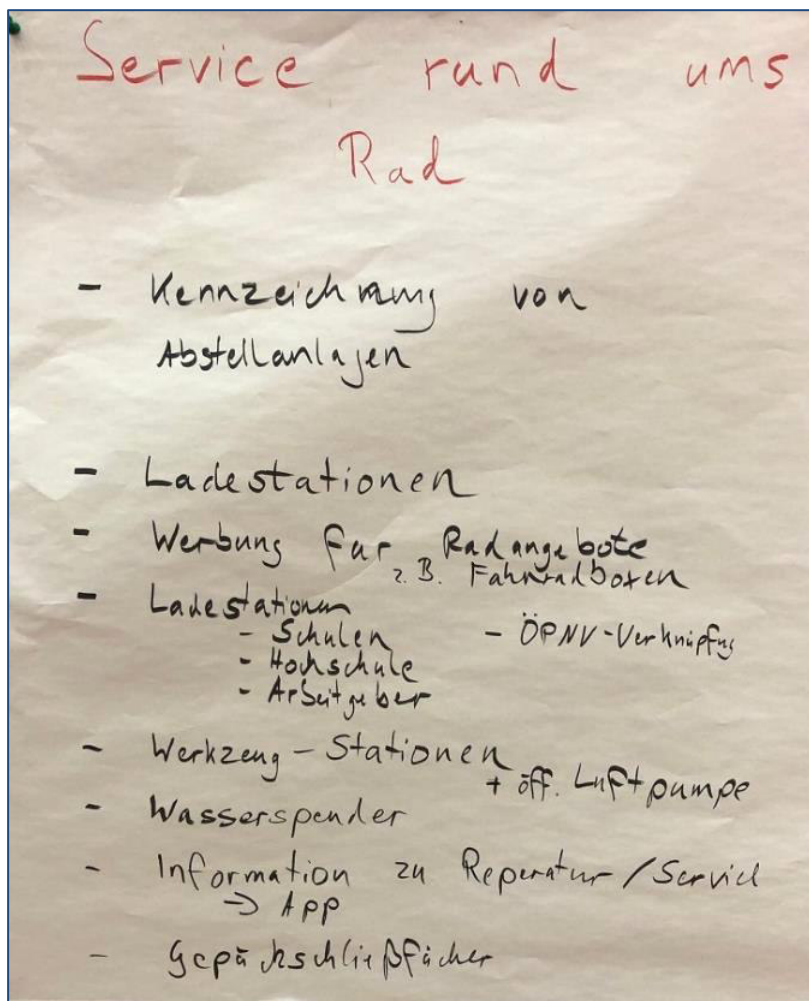 Service rund ums
Rad
- Kennzeichnung von
Abstellanlagen
- Ladestationen
- Werbung für Radangebote
z.B. Fahrradboxen
- Ladestationen
- Schulen - ÖPNV-Verknüpfg
- Hochschule
- Arbeitgeber
- Werkzeug-Stationen
+ öff. Luftpumpe
- Wasserspender
- Information zu Reperatur/Service
→ App
- Gepäckschließfächer